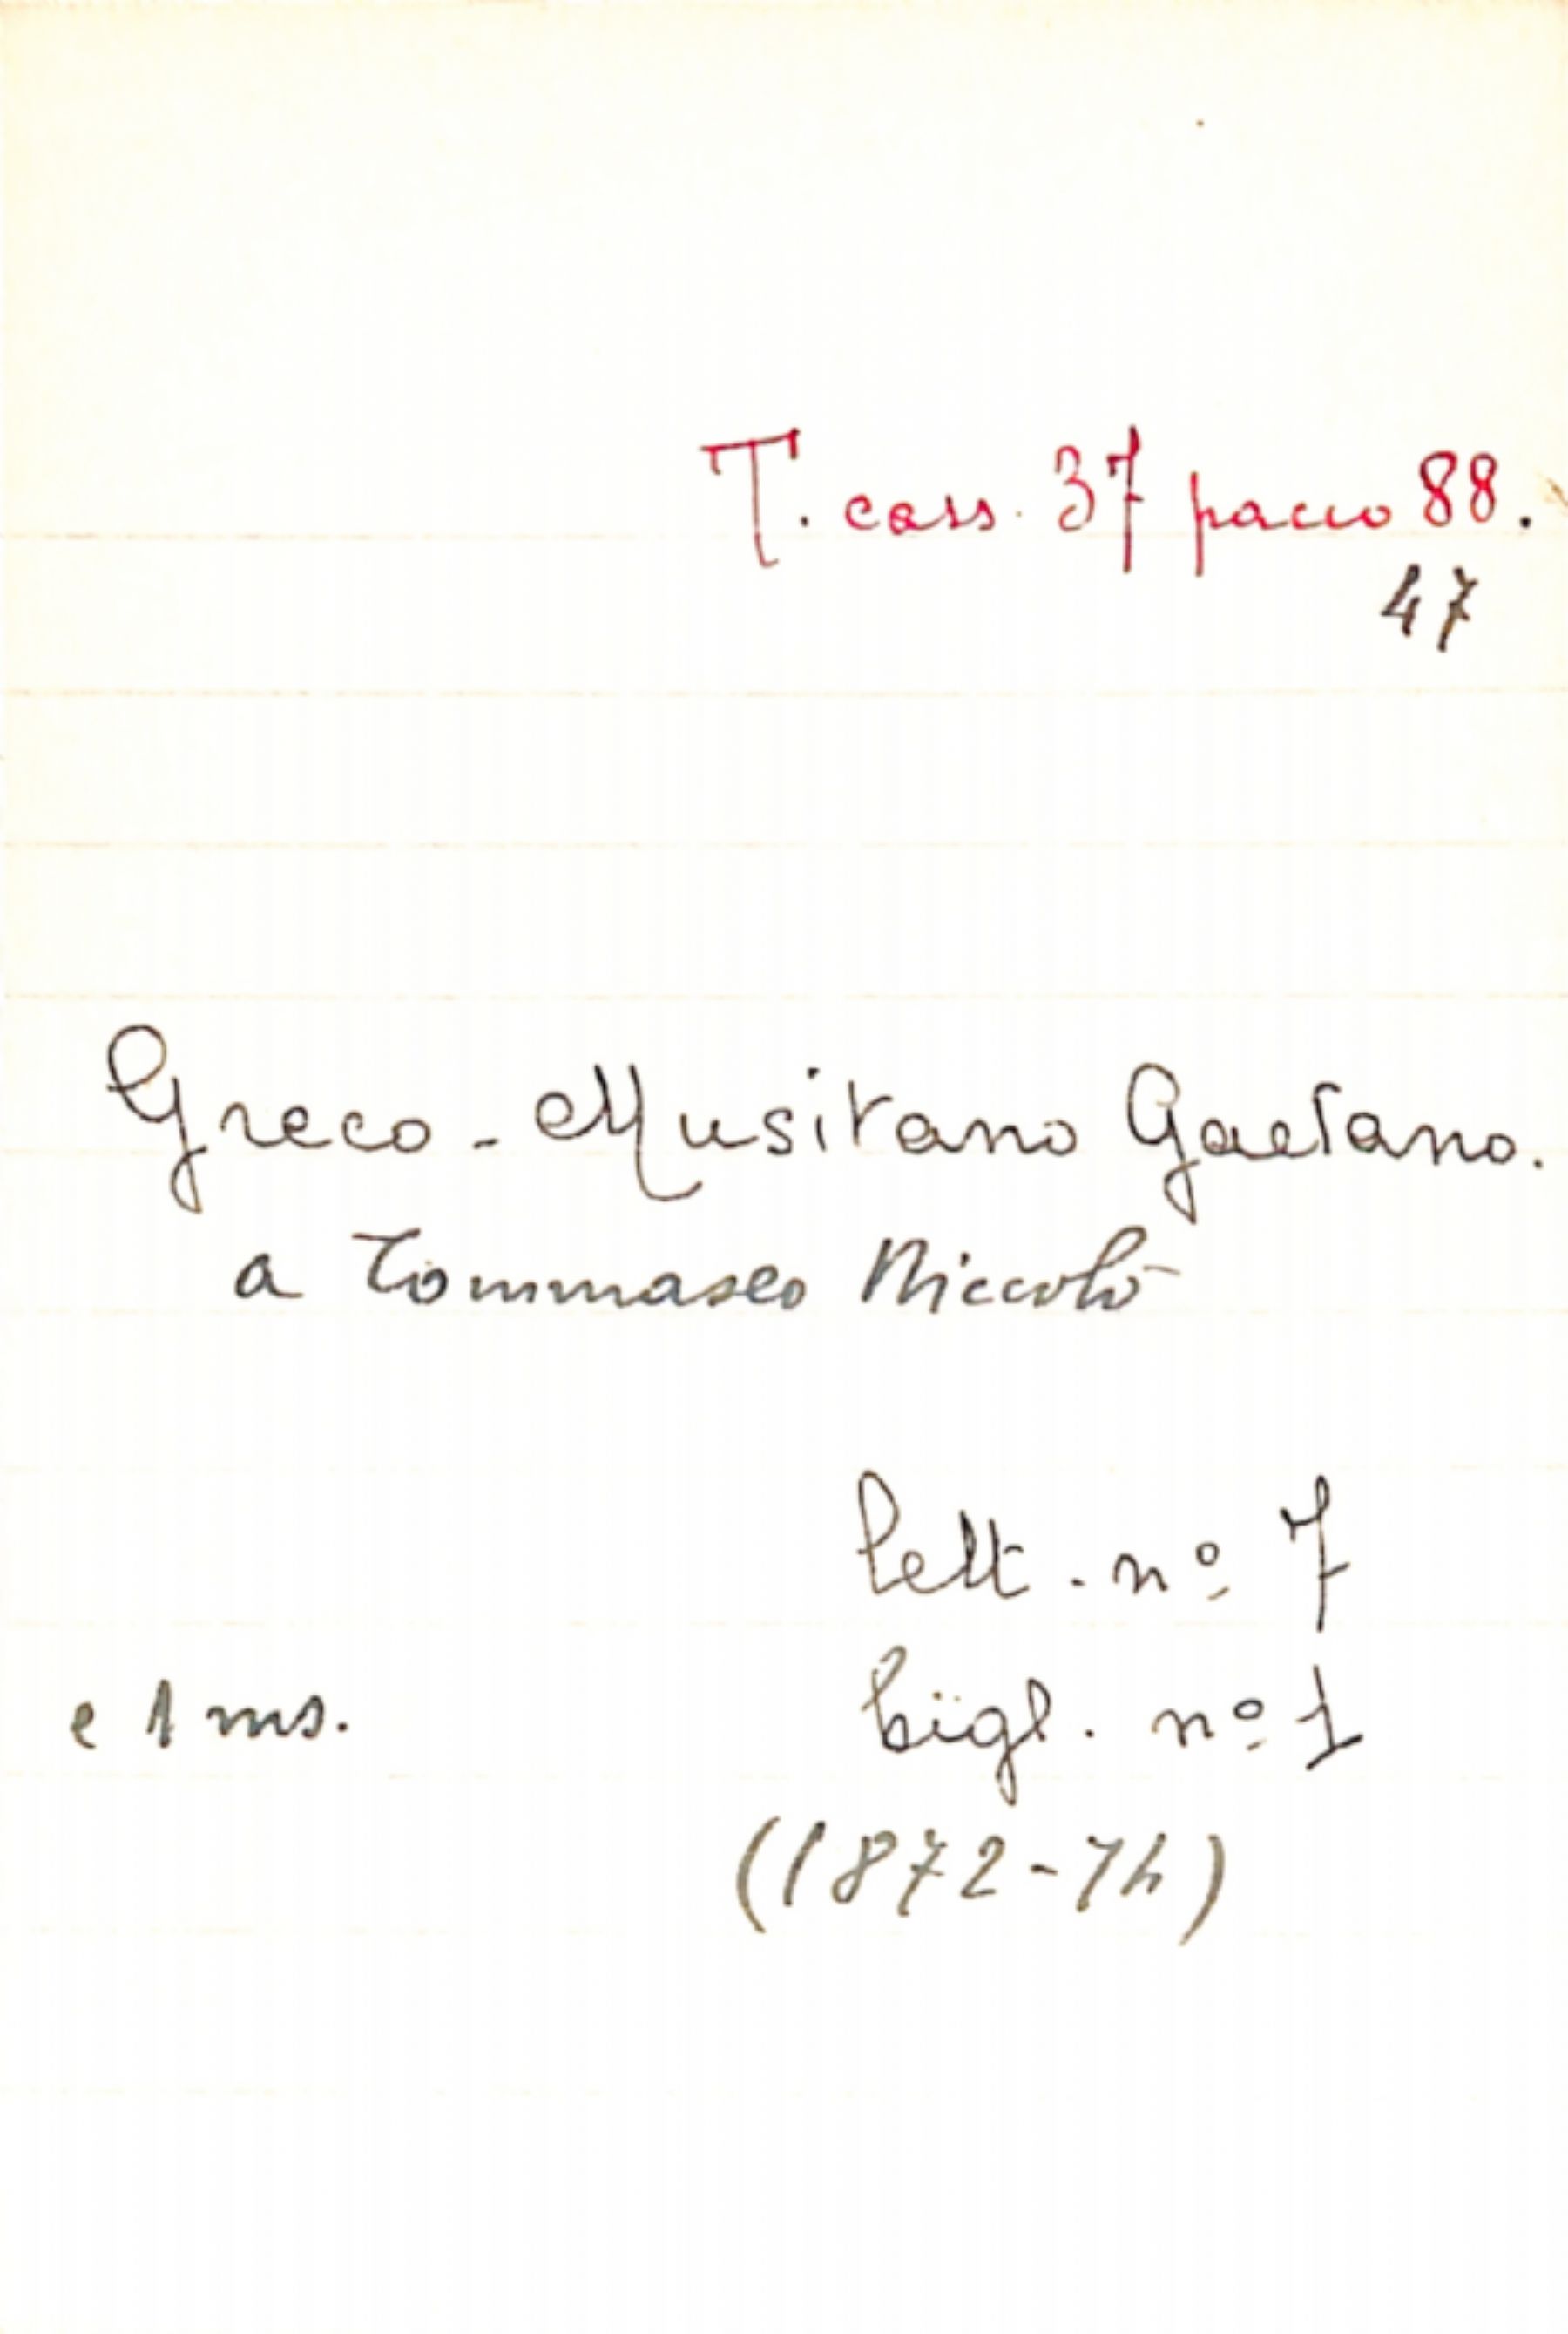 T. cass. 37 pacco 88.
47
Greco-Musitano Gaetano.
a Tommaseo Niccolò
lett. nº 7
e 1 ms.
bigl. nº 1
(1872-74)